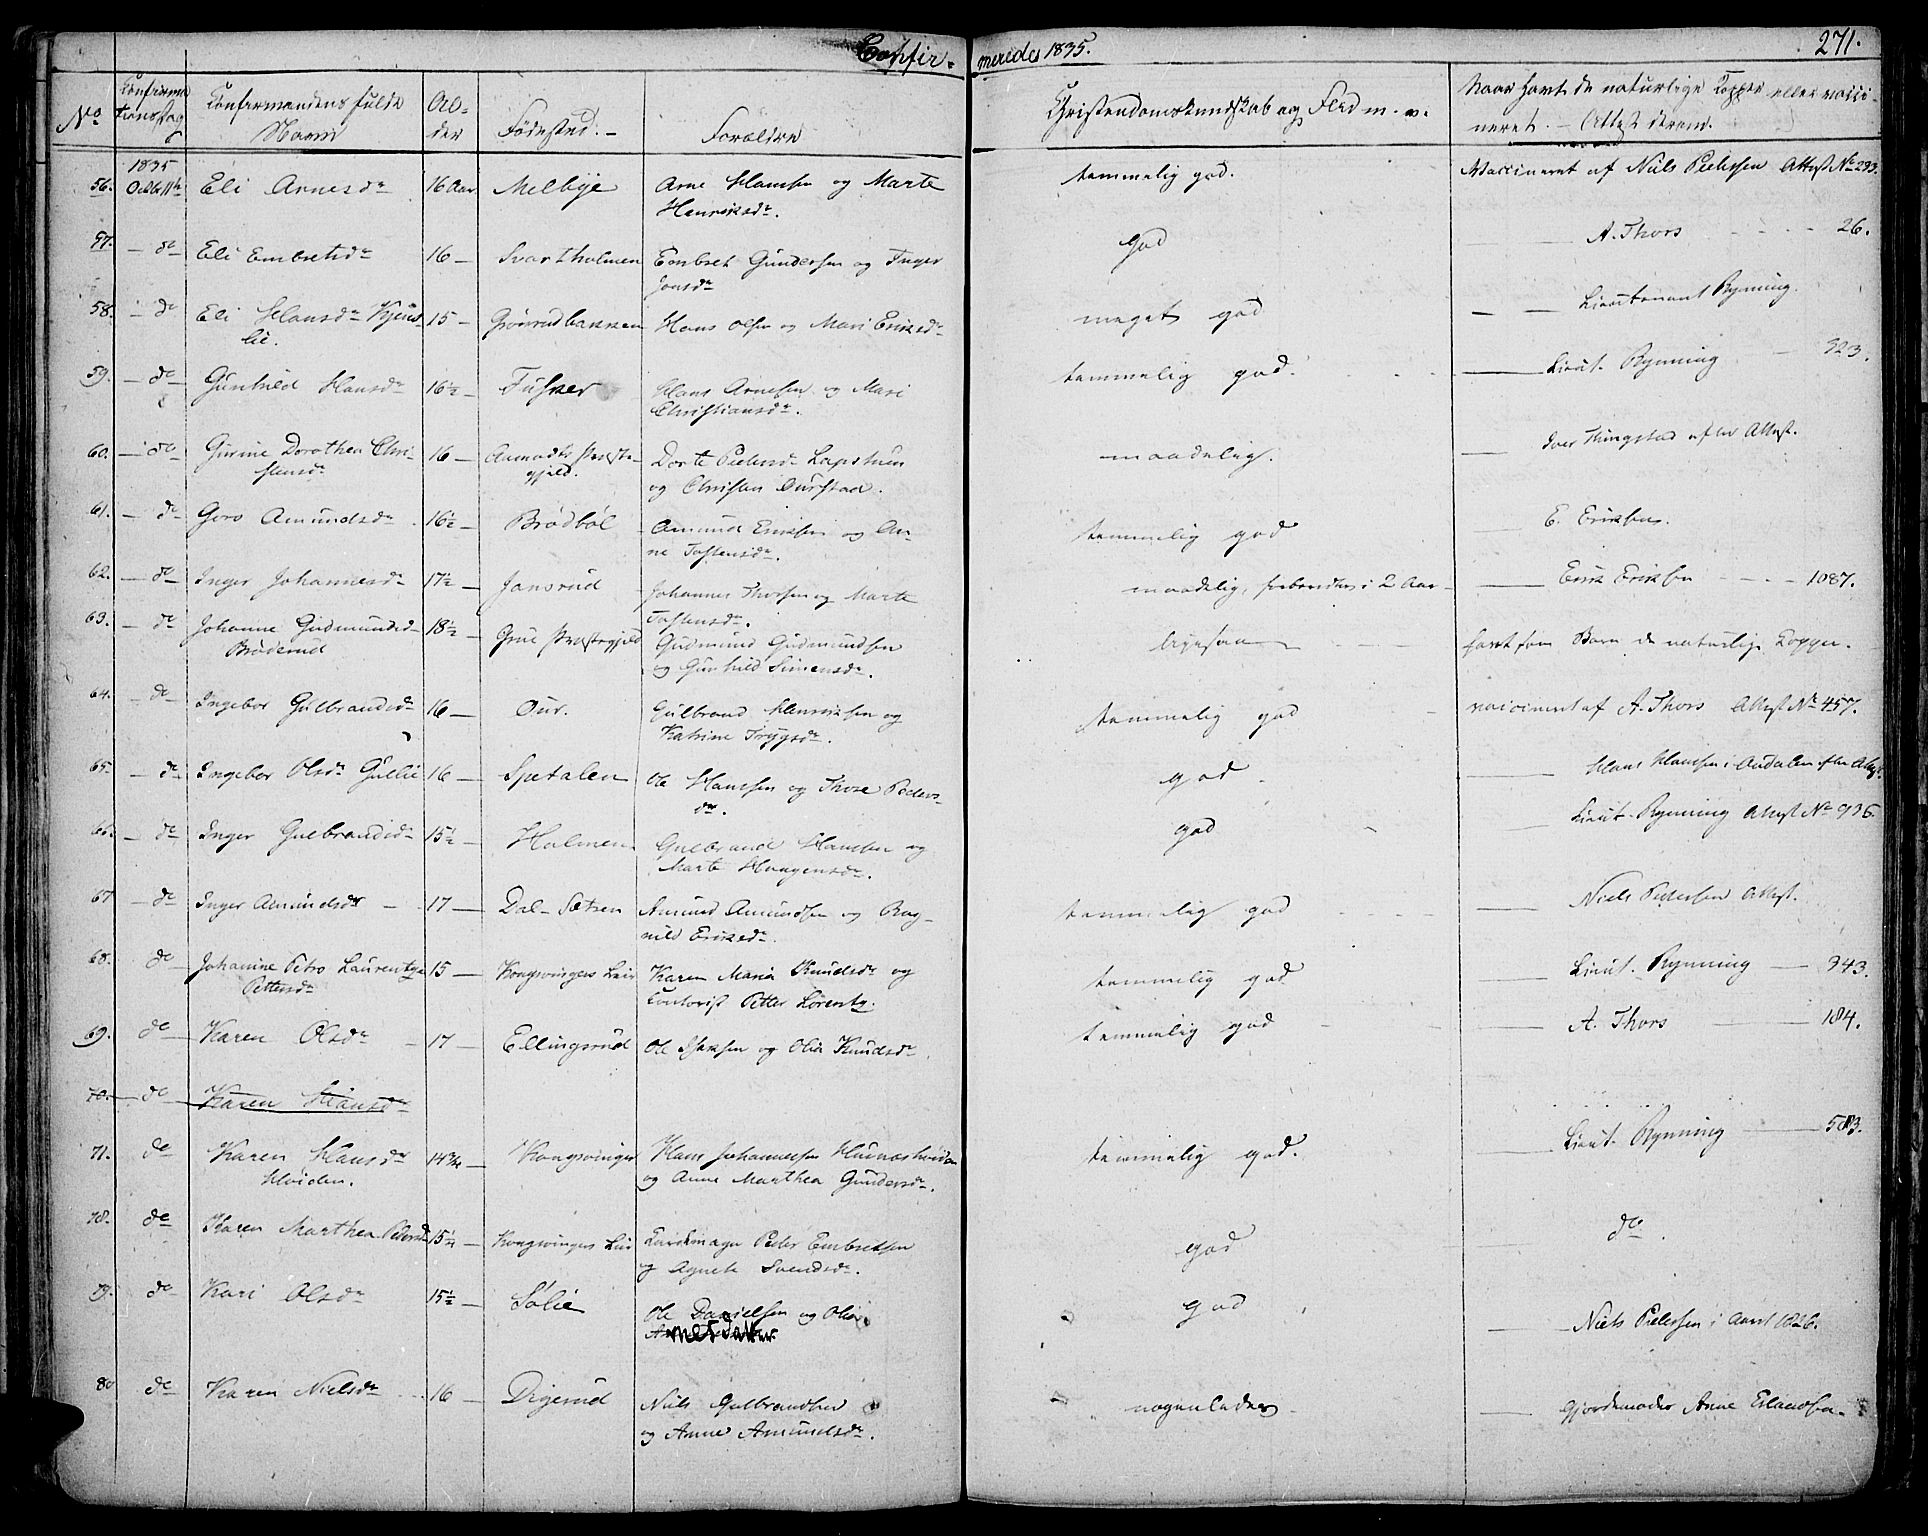 Confirmeredes 1835. 271.
No Confirmationsdag Confirmandens fulde Navn Alder Fødested. Forældre Christendomskundskab og Flid m. v. Naar havt de naturlige Kopper eller vaccineret. - Attest derom.
1835
56. Octbr 11te Eli Arnesdr 16 Aar Melbye Arne Hansen og Marte temmelig god. Vaccineret af Niels Pedersen Attest No 293.
Henriksdr.
57. - do - Eli Embretsdr 16 - Svartholmen Embret Gundersen og Inger god A. Thors 26.
Jonsdr
58. - do - Eli Hansdr Kjens- 15 - Grønrudbakken Hans Olsen og Mari Eriksdr meget god Lieutenant Rynning.
lie.
59. - do - Gunhild Hansdr 16½ - Fusker Hans Arnesen og Mari temmelig god. Lieut. Rynning 323.
Christiansdr.
60. - do Gurine Dorothea Chri- 16 - Aamodts Præste- Dorte Pedersdr Lapstuen maadelig. Iver Kungstad efter Attest.
stansdr gjeld. og Christian Ourstad.
61. - do Goro Amundsdr 16½ - Brødbøl Amund Eriksen og An- temmelig god E. Eriksen.
ne Tostensdr.
62. - do Inger Johannesdr 17½ - Jansrud Johannes Thorsen og Marte maadelig, forberedes i 2 Aar Erik Eriksen 1087.
Tostensdr.
63. - do Johanne Gudmundsd 18½ - Grue Præstegjeld Gudmund Gudmundsen ligesaa havt som Barn de naturlige Kopper.
Bröderud og Gunhild Simensdr.
64. - do Ingebor Gulbrandsdr 16 - Our. Gulbrand Henriksen og temmelig god vaccineret af A. Thors Attest No 457.
Katrine Trygsdr.
65 - do Ingebor Olsdr Gullie 16 Spetalen Ole Hansen og Thore Peders- god. Hans Hansen i Audalen efter Attest
dr.
66. - do Inger Gulbrandsdr 15½ - Holmen Gulbrand Hansen og god Lieut. Rynning Attest No 996.
Marte Haagensdr.
67 - do - Inger Amundsdr 17 - Dal-Sætren Amund Amundsen og Rag- temmelig god Niels Pedersen Attest.
nild Eriksdr.
68. do - Johanne Petro Laurentze 15 - Kongsvingers Leir Karen Maria Knudsdr og temmelig god Lieut. Rynning 943.
Pettersdr Contorist Petter Lorentz.
69. do - Karen Olsdr 17 - Ellingsrud Ole Isaksen og Olia Knudsdr. temmelig god A. Thors 184.
70. do - Karen Hansdr
71. do Karen Hansdr 14¾ - Kongsvinger Hans Johannesen temmelig god. Lieut. Rynning 583.
Hoiden. og Anne Marthea Gundersdr.
78. do Karen Marthea Pedersd 15¼ - Kongsvingers Leir Peder Embretsen god do.
og Agnete Svendsdr.
79. do Kari Olsdr 15½ - Solie Ole Danielsen og Olia god Niels Pedersen i Aaret 1826.
80 do Karen Nielsdr 16 - Digerud Niels Gulbrandsen nogenledes Gjordemoder Anne Erlandsen.
og Anne Amundsdr.